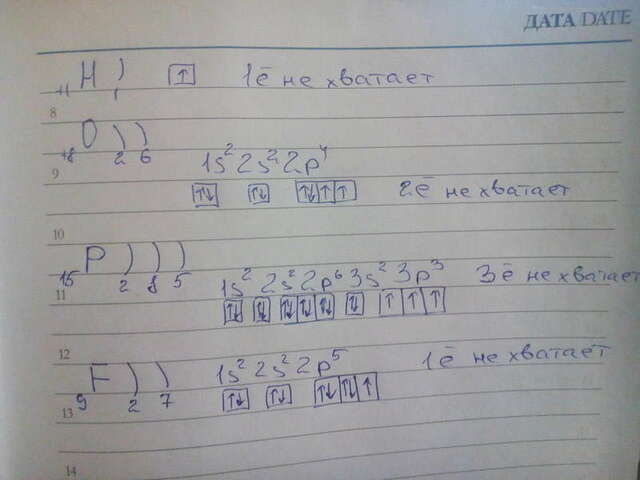 ДАТА DATE
+1 H ) ↑ 1ē не хватает
1
8
O ) )
+8 2 6 1s² 2s² 2p⁴
9
↑↓ ↑↓ ↑↓ ↑ ↑ 2ē не хватает
10
P ) ) )
15 2 8 5 1s² 2s² 2p⁶ 3s² 3p³ 3ē не хватает
11
↑↓ ↑↓ ↑↓ ↑↓ ↑↓ ↑↓ ↑ ↑ ↑
12
F ) ) 1s² 2s² 2p⁵ 1ē не хватает
9 2 7
↑↓ ↑↓ ↑↓ ↑↓ ↑
13
14